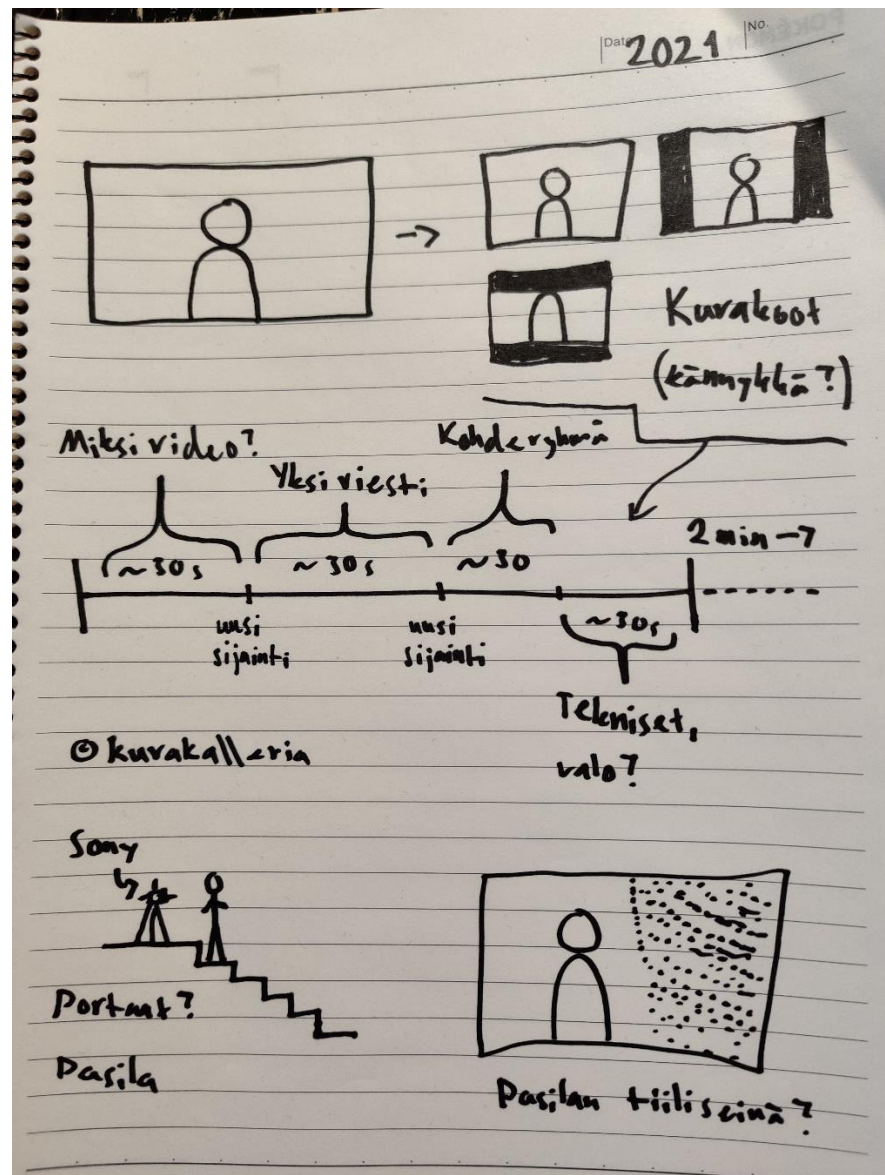 Date 2021 No.
Kuvakoot
(kännykkä?)
Miksi video?
Yksi viesti
Kohderyhmä
2 min →
~30s
~30s
~30
~30s
uusi
sijainti
uusi
sijainti
Tekniset,
valo?
© kuvakalleria
Sony
Portaat?
Pasila
Pasilan tiiliseinä?